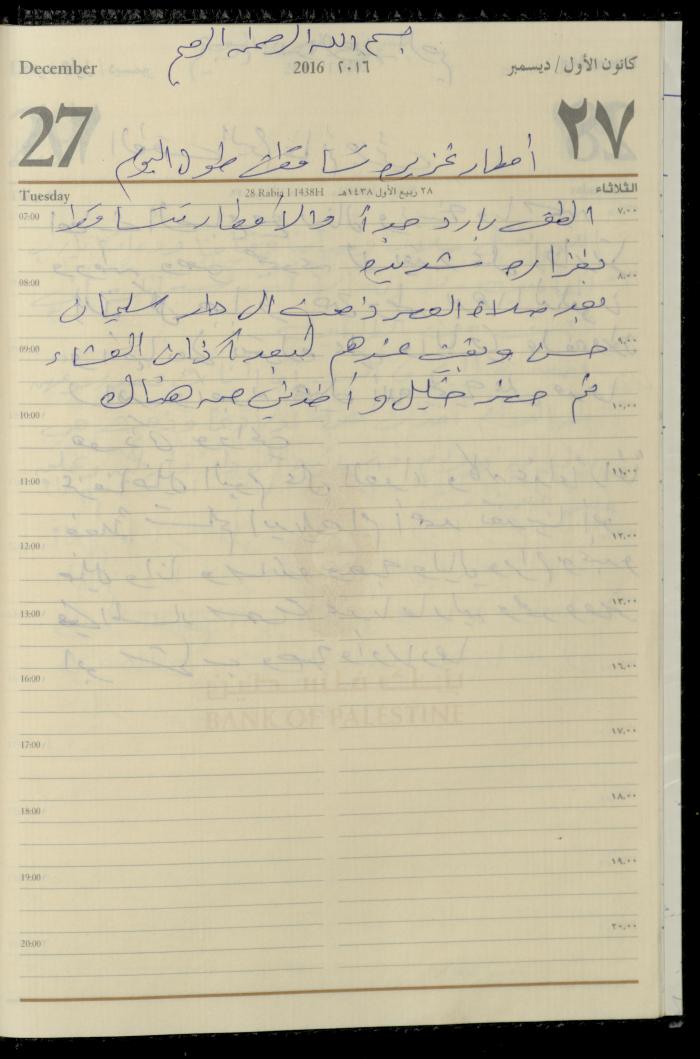 بسم الله الرحمن الرحيم
December 2016 ٢٠١٦ كانون الأول / ديسمبر
27 ٢٧
أمطار غزيره تساقطت طول اليوم
Tuesday 28 Rabia I 1438H ٢٨ ربيع الأول ١٤٣٨هـ الثلاثاء
07:00 ٧,٠٠
الطقس بارد جداً والأمطار تتساقط
بغزاره شديده
08:00 ٨,٠٠
بعد صلاة العصر ذهبت الى دار سليمان
09:00 ٩,٠٠
حسن وبقيت عندهم لبعد آذان العشاء
ثم حضر خليل وأخذني من هناك
10:00 ١٠,٠٠
11:00 ١١,٠٠
12:00 ١٢,٠٠
13:00 ١٣,٠٠
16:00 ١٦,٠٠
BANK OF PALESTINE
17:00 ١٧,٠٠
18:00 ١٨,٠٠
19:00 ١٩,٠٠
20:00 ٢٠,٠٠